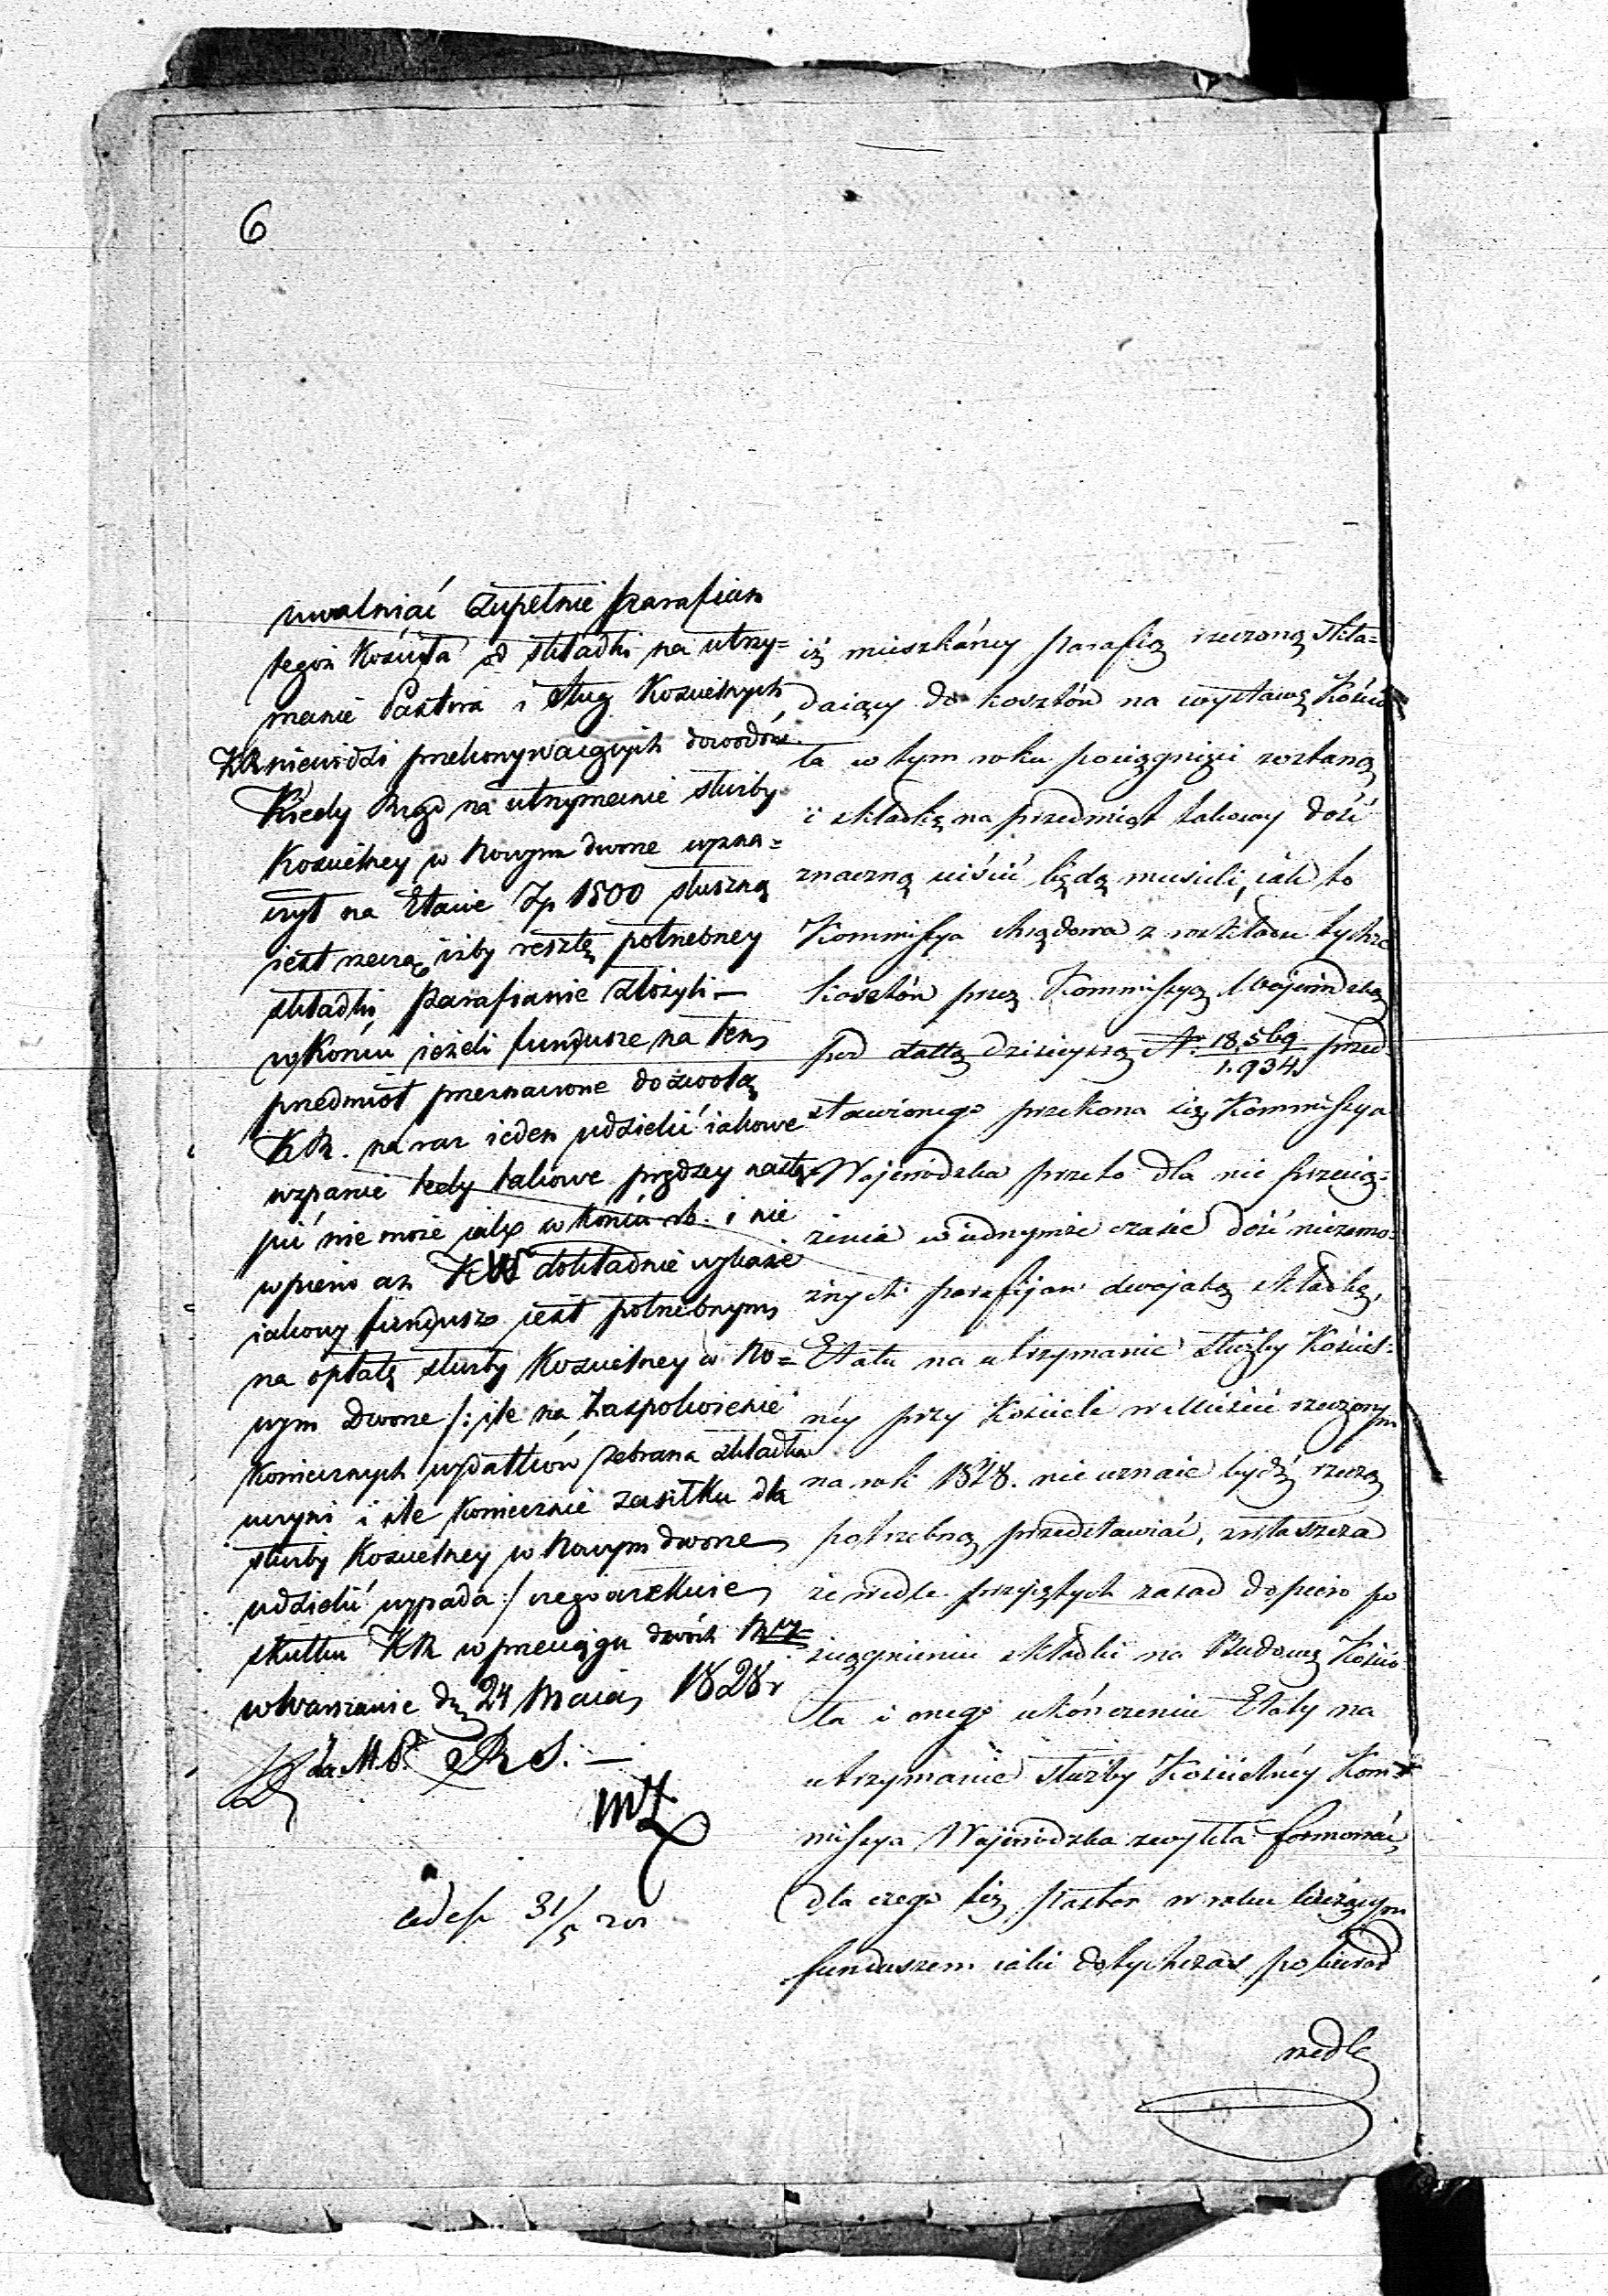 6
uwalniać zupełnie parafian
tegoż Kościoła od składki na utrzy=
manie Pastora i sług Kościelnych
KR niewidzi przekonywaiących dowodów.
Kiedy Rząd na utrzymanie służby
Kościelney w Nowym dworze wyzna=
czył na Etacie Zp 1500 słuszną
iest rzeczą, iżby resztę potrzebney
składki Parafianie złożyli —
w Końcu ieżeli fundusze na ten
przedmiot przeznaczone dozwolą
KR. na raz ieden udzielić iakowe
wsparcie tedy takowe prędzey nastą=
pić nie może iak w końcu rb. i nie
wpierw aż KW dokładnie wykaże
iakowy fundusz iest potrzebnym
na opłatę służby Kościelney w No=
wym Dworze /: ile na zaspokoienie
koniecznych wydatków zebrana składka
uczyni i ile koniecznie zasiłku dla
służby Kościelney w Nowym dworze
udzielić wypada :/ czego oczekuie
skutku KR w przeciągu dwóch
w Warszawie dn 24 Maia 1828 r
MZ
31/5
iż mieszkańcy Parafią rzeczoną skła=
daiący do kosztów na wystawę Kościo
ła w tym roku pociągnięci zostaną
i składkę na przedmiot takowy dość
znaczną uiścić będą musieli, iak to
Kommissya Rządowa z rozkładu tychże
kosztów przez Kommissyą Wojewódzką
pod dattą dzisieyszą N. 18,569/1.934 przed=
stawionego przekona się, Kommissya
Wojewódzka przeto dla nie przecią=
żenia w iednymże czasie dość niezamo=
żnych parafijan dwojaką składką,
Etatu na utrzymanie służby Kościel=
néy przy Kościele w Mieście rzeczonym
na rok 1828. nie uznaie bydź rzeczą
potrzebną przedstawiać, zwłaszcza
że wedle przyiętych zasad dopiero po
ściągnieniu składki na Budowę Kościo
ła i onego ukończeniu Etaty na
utrzymanie służby Kościelnéy Kom=
missya Wojewódzka zwykła formować,
dla czego też Pastor w roku bieżącym
funduszem iaki dotychczas pobierał
wedle